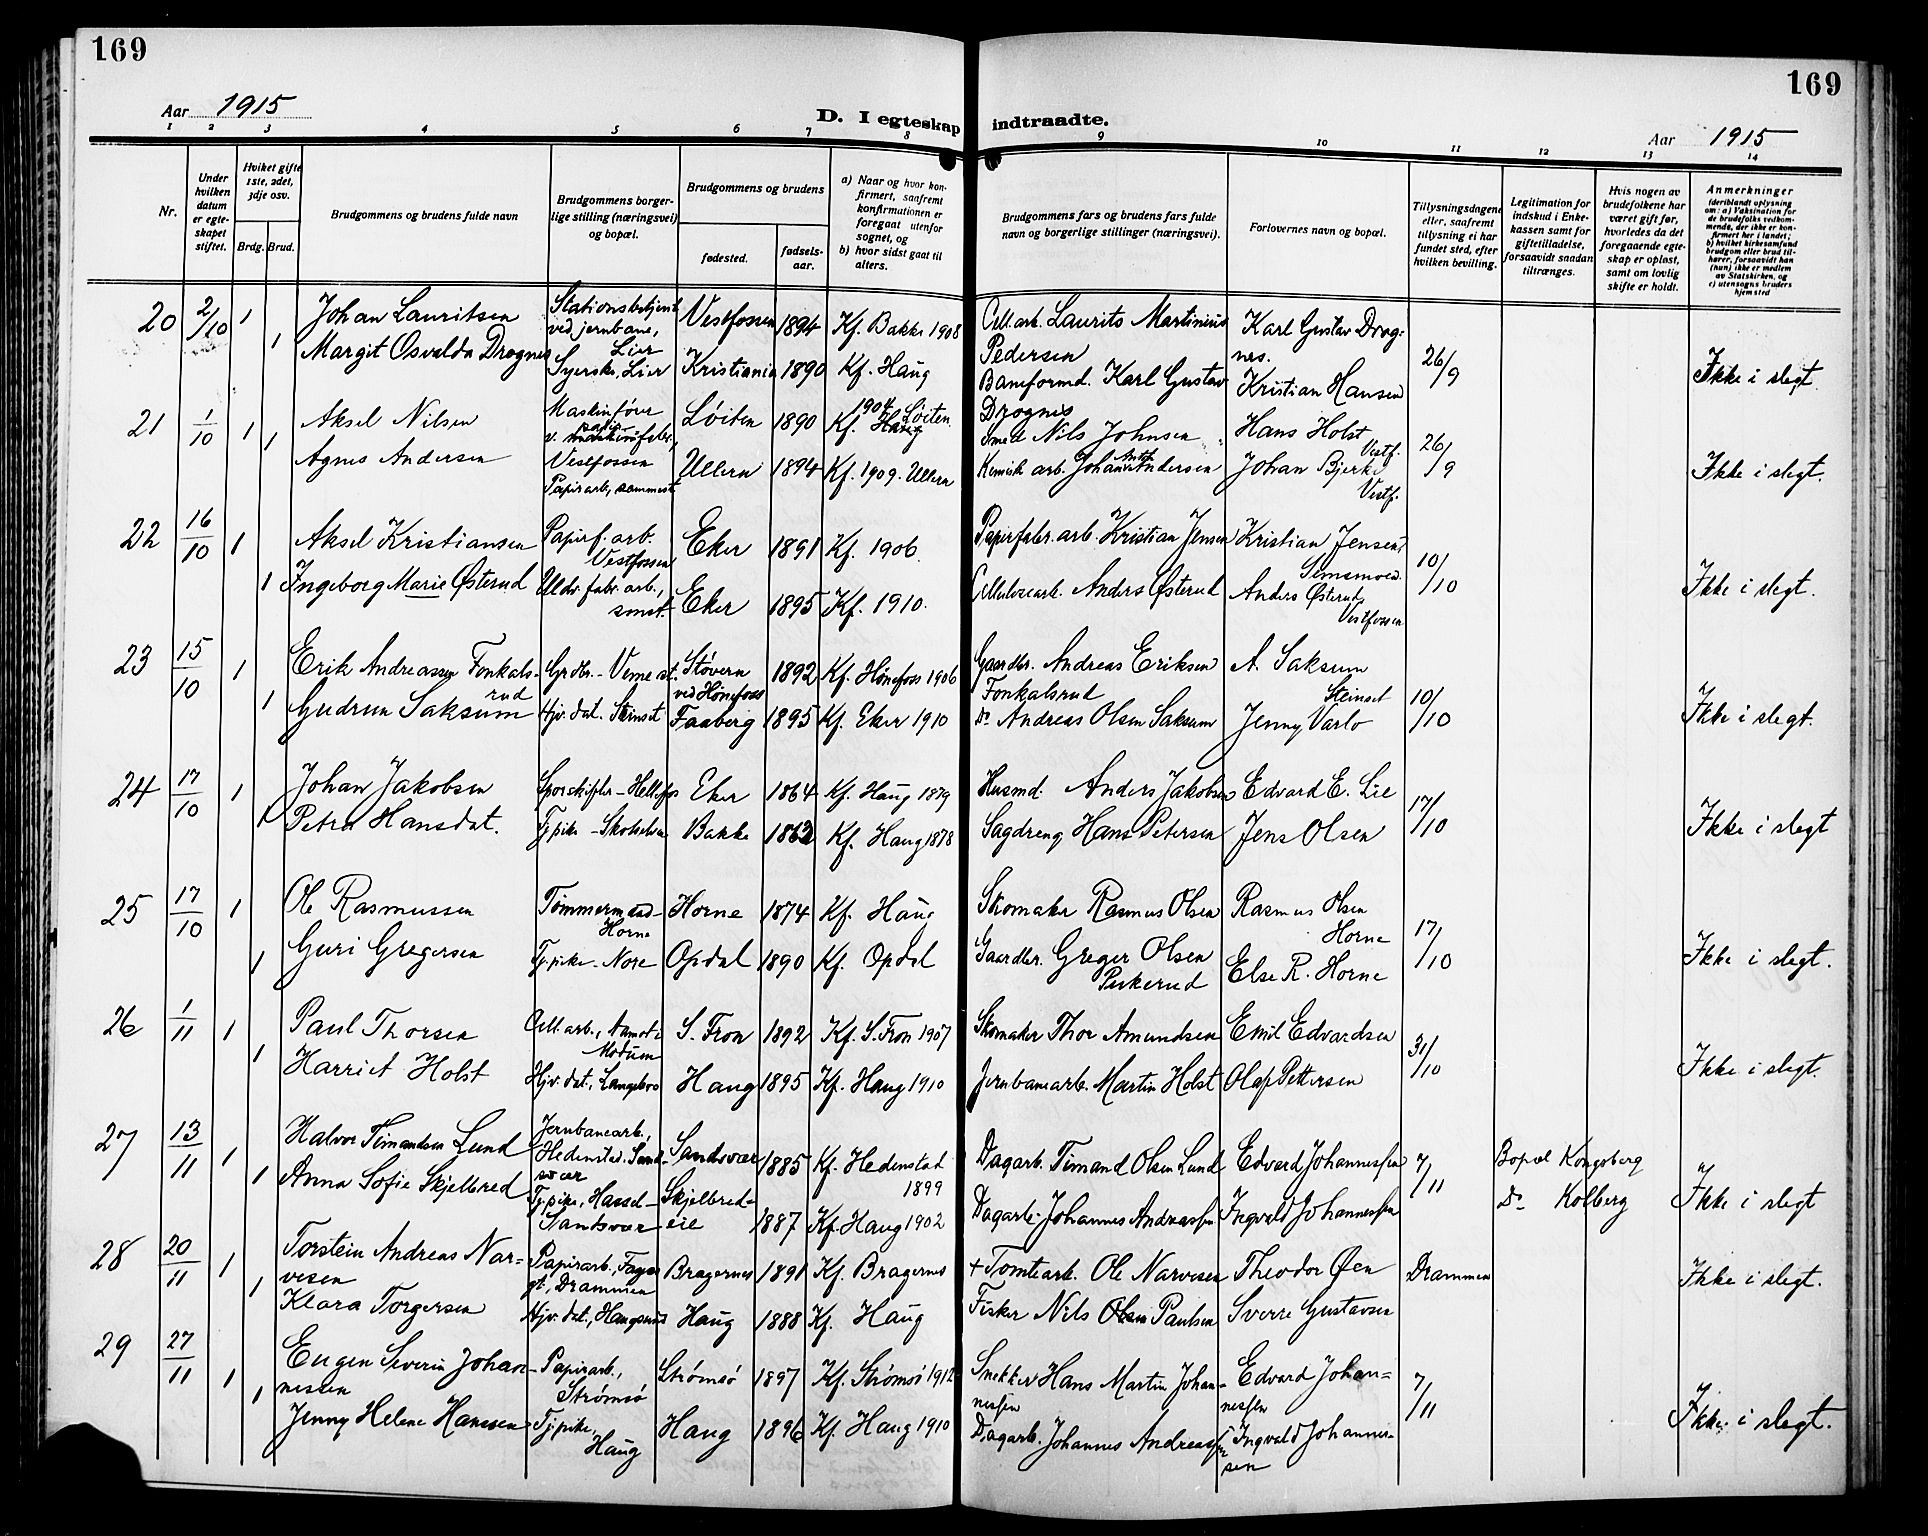 169
169
Aar 1915
D. I egteskap indtraadte.
Aar 1915
1 2 3 4 5 6 7 8 9 10 11 12 13 14
Nr.
Under hvilken datum er egteskapet stiftet.
Hvilket gifte 1ste, 2det, 3dje osv.
Brdg. Brud.
Brudgommens og brudens fulde navn
Brudgommens borgerlige stilling (næringsvei) og bopæl.
Brudgommens og brudens
fødested.
fødselsaar.
a) Naar og hvor konfirmert, saafremt konfirmationen er foregaat utenfor sognet, og
b) hvor sidst gaat til alters.
Brudgommens fars og brudens fars fulde navn og borgerlige stillinger (næringsvei).
Forlovernes navn og bopæl.
Tillysningsdagene eller, saafremt tillysning ei har fundet sted, efter hvilken bevilling.
Legitimation for indskud i Enkekassen samt for giftetilladelse, forsaavidt saadan tiltrænges.
Hvis nogen av brudefolkene har været gift før, hvorledes da det foregaaende egteskap er opløst, samt om lovlig skifte er holdt.
Anmerkninger (deriblandt oplysning om: a) Vaksination for de brudefolks vedkommende, der ikke er konfirmert her i landet; b) hvilket kirkesamfund brudgom eller brud tilhører, forsaavidt han (hun) ikke er medlem av Statskirken, og c) utensogns bruders hjemsted
20 2/10 1 Johan Lauritsen Stationsbetjent ved jernbane, Lier Vestfossen 1894 Kf. Bakke 1908 Cell. arb. Laurits Martinius Pedersen Karl Gustav Drognes. 26/9 Ikke i slegt.
1 Margit Osvalda Drognes Syerske, Lier Kristiania 1890 Kf. Haug Baneformd. Karl Gustav Drognes Kristian Hansen
21 1/10 1 Aksel Nilsen Maskinfører v. papirfabr., Vestfossen Løiten 1890 Kf. 1904 Løiten Smed Nils Johnsen Hans Holst Vestf. 26/9 Ikke i slegt.
1 Agnes Andersen Papirarb., sammest. Ullern 1894 Kf. 1909. Ullern Kemisk arb. Johan Anton Andersen Johan Bjerke Vestf.
22 16/10 1 Aksel Kristiansen Papirf. arb. Vestfossen Eker 1891 Kf. 1906 Papirfabr. arb. Kristian Jensen Kristian Jensen, Semsmoen 10/10 Ikke i slegt.
1 Ingeborg Marie Østerud Uldv. fabr. arb., smst. Eker 1895 Kf. 1910. Cellulosearb. Anders Østerud Anders Østerud, Vestfossen
23 15/10 1 Erik Andreassen Fonkalsrud Grdbr. - Veme st. Støvern ved Hønefoss 1892 Kf. Hønefoss 1906 Gaardbr. Andreas Eriksen Fonkalsrud A. Saksum Steinset 10/10 Ikke i slegt.
1 Gudrun Saksum Hjv. dat. Steinset Faaberg 1895 Kf. Eker 1910 Do Andreas Olsen Saksum Jenny Varlo
24 17/10 1 Johan Jakobsen Sporskifter - Hellefos Eker 1864 Kf. Haug 1879 Husmd. Anders Jakobsen Edvard E. Lie 17/10 Ikke i slegt
1 Petra Hansdat. Tj.pike - Skotselven Bakke 1862 Kf. Haug 1878 Sagdreng Hans Petersen Jens Olsen
25 17/10 1 Ole Rasmussen Tømmermand - Horne Horne 1874 Kf. Haug Skomaker Rasmus Olsen Rasmus Olsen Horne 17/10 Ikke i slegt.
1 Guri Gregersen Tj.pike - Nore Opdal 1890 Kf. Opdal Gaardbr. Greger Olsen Else R. Horne
26 1/11 1 Paul Thorsen Cell. arb., Aamot i Modum S. Fron 1892 Kf. S. Fron 1907 Skomaker Thor Amundsen Emil Edvardsen 31/10 Ikke i slegt.
1 Harriet Holst Hjv. dat., Langebro Haug 1895 Kf. Haug 1910 Jernbanearb. Martin Holst Olaf Pettersen
27 13/11 1 Halvor Timandsen Lund Jernbanearb., Hedenstad. Sandsvær Sandsvær 1885 Kf. Hedenstad 1899 Dagarb. Timand Olsen Lund Edvard Johannessen 7/11 Bopæl Kongsberg Ikke i slegt
1 Anna Sofie Skjelbred Tj.pike, Hassel - Sandsvær Skjelbred-eie 1887 Kf. Haug 1902 Dagarb. Johannes Andreassen Ingvald Johannessen Do Kolberg
28 20/11 1 Torstein Andreas Narvesen Papirarb., gt., Drammen Bragernes 1891 Kf. Bragernes + Tomtearb. Ole Narvesen Theodor Øen Drammen Ikke i slegt.
1 Klara Torgersen Hjv. dat., Haugsund Haug 1888 Kf. Haug Fisker Nils Olsen Paulsen Sverre Gustavsen
29 27/11 1 Eugen Severin Johannessen Papirarb., Strømsø Strømsø 1897 Kf. Strømsø 1912 Snekker Hans Martin Johannessen Edvard Johannessen 7/11 Ikke i slegt.
1 Jenny Helene Hanssen Tj.pike, Haug Haug 1896 Kf. Haug 1910 Dagarb. Johannes Andreassen Ingvald Johannessen